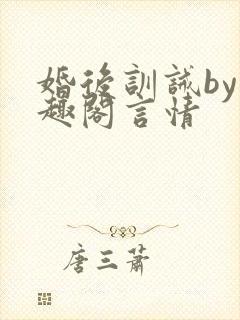 婚後訓誡by
趣閣言情
唐三蕭